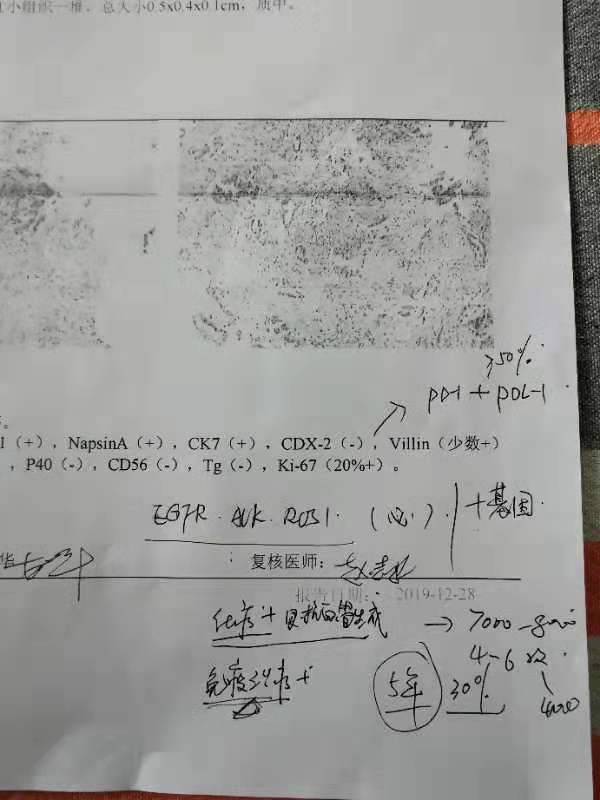 小组织一堆。总大小0.5x0.4x0.1cm，质中。
≥50%.
PD-1 + PDL-1
(+)，NapsinA (+)，CK7 (+)，CDX-2 (-)，Villin (少数+)
，P40 (-)，CD56 (-)，Tg (-)，Ki-67 (20%+)。
EGFR. ALK. ROS1. ( ). 十基因.
复核医师：
报告日期： 2019-12-28
化疗 + 贝抗血管生成 → 7000-8000
4-6次.
免疫治疗 + 5年 30% 4000